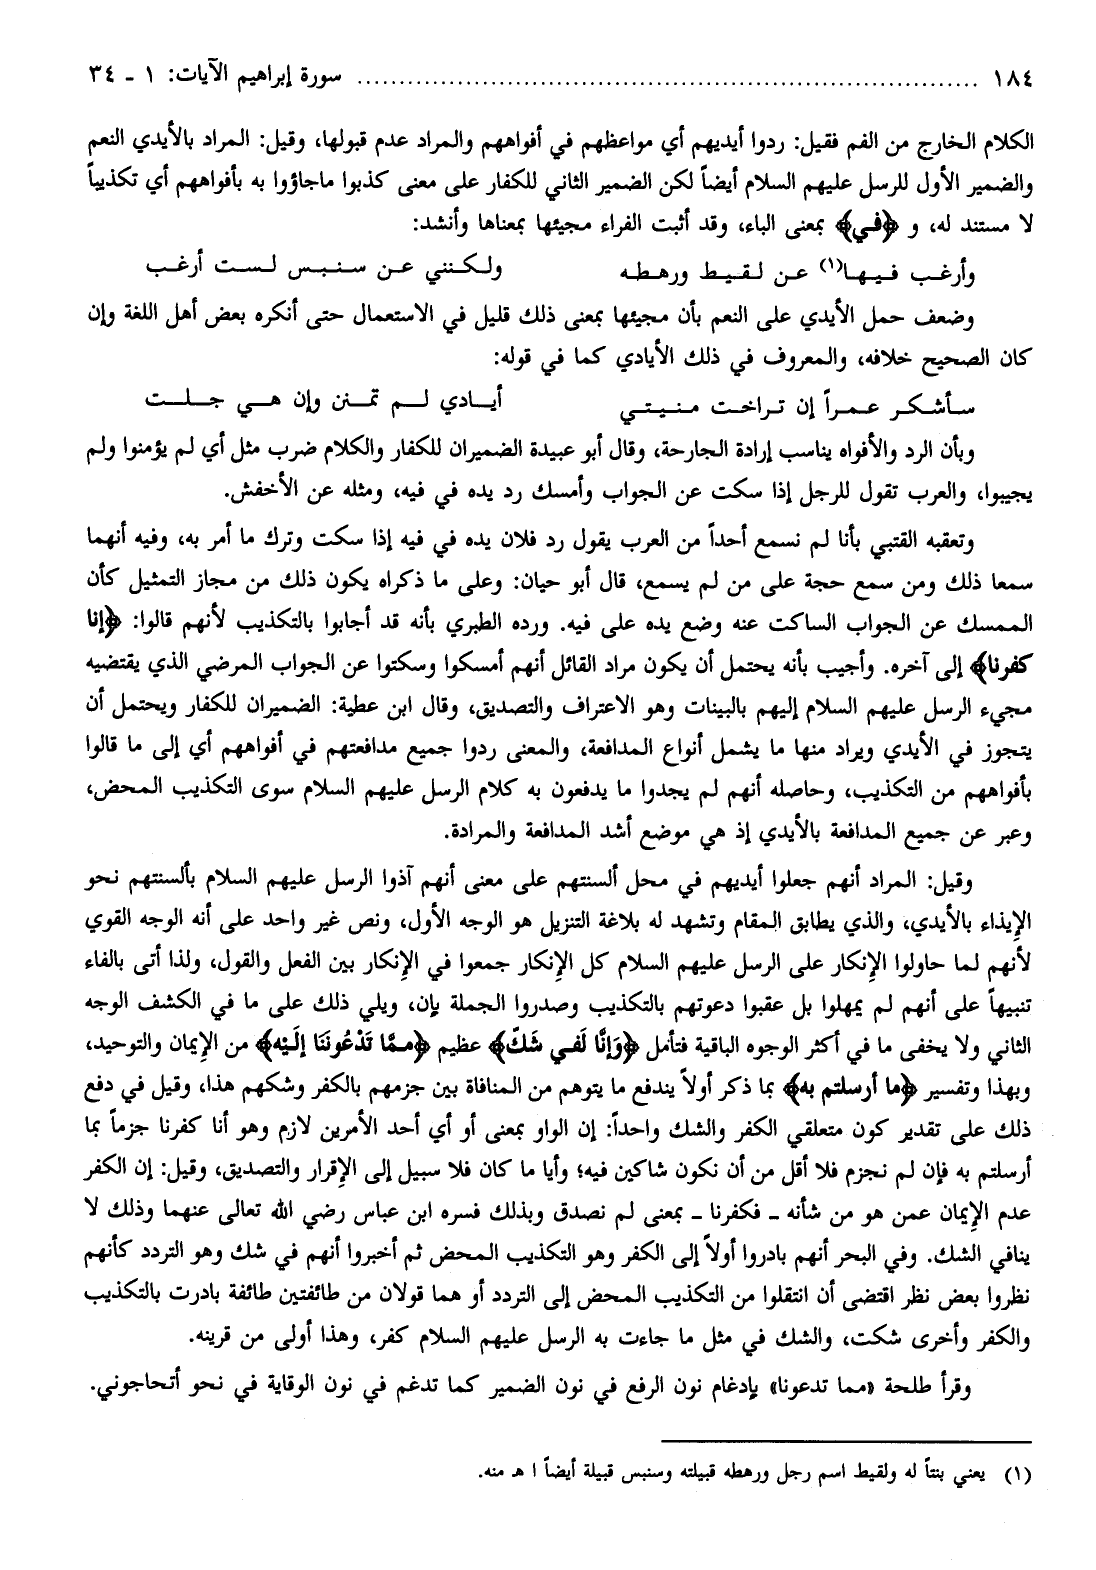 ١٨٤ ........................................................................ سورة إبراهيم الآيات: ١ - ٣٤
الكلام الخارج من الفم فقيل: ردوا أيديهم أي مواعظهم في أفواههم والمراد عدم قبولها، وقيل: المراد بالأيدي النعم
والضمير الأول للرسل عليهم السلام أيضاً لكن الضمير الثاني للكفار على معنى كذبوا ماجاؤوا به بأفواههم أي تكذيباً
لا مستند له، و ﴿في﴾ بمعنى الباء، وقد أثبت الفراء مجيئها بمعناها وأنشد:
وأرغب فيها(١) عن لقيط ورهطه ولكنني عن سنبس لست أرغب
وضعف حمل الأيدي على النعم بأن مجيئها بمعنى ذلك قليل في الاستعمال حتى أنكره بعض أهل اللغة وإن
كان الصحيح خلافه، والمعروف في ذلك الأيادي كما في قوله:
سأشكر عمراً إن تراخت منيتي أيادي لم تمنن وإن هي جلت
وبأن الرد والأفواه يناسب إرادة الجارحة، وقال أبو عبيدة الضميران للكفار والكلام ضرب مثل أي لم يؤمنوا ولم
يجيبوا، والعرب تقول للرجل إذا سكت عن الجواب وأمسك رد يده في فيه، ومثله عن الأخفش.
وتعقبه القتبي بأنا لم نسمع أحداً من العرب يقول رد فلان يده في فيه إذا سكت وترك ما أمر به، وفيه أنهما
سمعا ذلك ومن سمع حجة على من لم يسمع، قال أبو حيان: وعلى ما ذكراه يكون ذلك من مجاز التمثيل كأن
الممسك عن الجواب الساكت عنه وضع يده على فيه. ورده الطبري بأنه قد أجابوا بالتكذيب لأنهم قالوا: ﴿إنا
كفرنا﴾ إلى آخره. وأجيب بأنه يحتمل أن يكون مراد القائل أنهم أمسكوا وسكتوا عن الجواب المرضي الذي يقتضيه
مجيء الرسل عليهم السلام إليهم بالبينات وهو الاعتراف والتصديق، وقال ابن عطية: الضميران للكفار ويحتمل أن
يتجوز في الأيدي ويراد منها ما يشمل أنواع المدافعة، والمعنى ردوا جميع مدافعتهم في أفواههم أي إلى ما قالوا
بأفواههم من التكذيب، وحاصله أنهم لم يجدوا ما يدفعون به كلام الرسل عليهم السلام سوى التكذيب المحض،
وعبر عن جميع المدافعة بالأيدي إذ هي موضع أشد المدافعة والمرادة.
وقيل: المراد أنهم جعلوا أيديهم في محل ألسنتهم على معنى أنهم آذوا الرسل عليهم السلام بألسنتهم نحو
الإيذاء بالأيدي، والذي يطابق المقام وتشهد له بلاغة التنزيل هو الوجه الأول، ونص غير واحد على أنه الوجه القوي
لأنهم لما حاولوا الإنكار على الرسل عليهم السلام كل الإنكار جمعوا في الإنكار بين الفعل والقول، ولذا أتى بالفاء
تنبيهاً على أنهم لم يمهلوا بل عقبوا دعوتهم بالتكذيب وصدروا الجملة بإن، ويلي ذلك على ما في الكشف الوجه
الثاني ولا يخفى ما في أكثر الوجوه الباقية فتأمل ﴿وَإِنَّا لَفي شَكّ﴾ عظيم ﴿ممَّا تَدْعُونَنَا إلَيْه﴾ من الإيمان والتوحيد،
وبهذا وتفسير ﴿ما أرسلتم به﴾ بما ذكر أولاً يندفع ما يتوهم من المنافاة بين جزمهم بالكفر وشكهم هذا، وقيل في دفع
ذلك على تقدير كون متعلقي الكفر والشك واحداً: إن الواو بمعنى أو أي أحد الأمرين لازم وهو أنا كفرنا جزماً بما
أرسلتم به فإن لم نجزم فلا أقل من أن نكون شاكين فيه؛ وأيا ما كان فلا سبيل إلى الإقرار والتصديق، وقيل: إن الكفر
عدم الإيمان عمن هو من شأنه - فكفرنا - بمعنى لم نصدق وبذلك فسره ابن عباس رضي الله تعالى عنهما وذلك لا
ينافي الشك. وفي البحر أنهم بادروا أولاً إلى الكفر وهو التكذيب المحض ثم أخبروا أنهم في شك وهو التردد كأنهم
نظروا بعض نظر اقتضى أن انتقلوا من التكذيب المحض إلى التردد أو هما قولان من طائفتين طائفة بادرت بالتكذيب
والكفر وأخرى شكت، والشك في مثل ما جاءت به الرسل عليهم السلام كفر، وهذا أولى من قرينه.
وقرأ طلحة «مما تدعونا» بإدغام نون الرفع في نون الضمير كما تدغم في نون الوقاية في نحو أتحاجوني.
(١) يعني بنتاً له ولقيط اسم رجل ورهطه قبيلته وسنبس قبيلة أيضاً ا هـ منه.